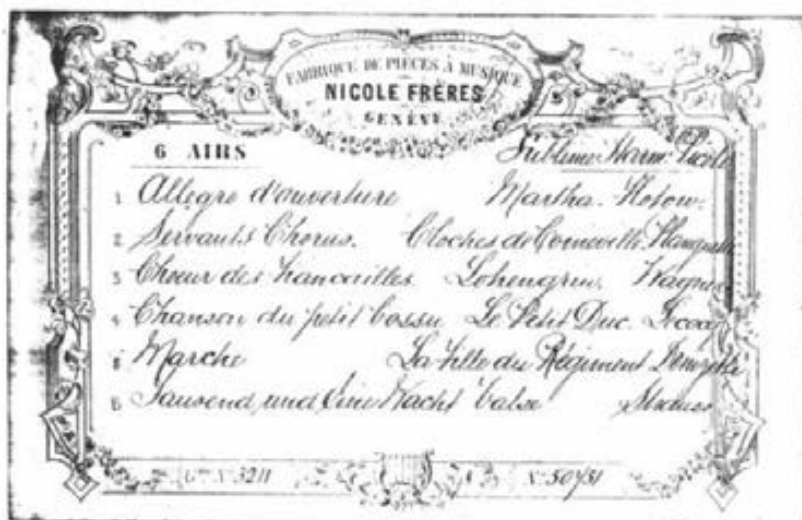 FABRIQUE DE PIECES À MUSIQUE
NICOLE FRÈRES
GENÈVE
6 AIRS Sublime Harm: Piccolo
1 Allegro d'ouverture Martha. Flotow.
2 Servants Chorus. Cloches de Corneville. Planquette
3 Choeur des fiancailles Lohengrin. Wagner
4 Chanson du petit bossu Le Petit Duc. Lecocq
5 Marche La fille du Régiment Donizetti
6 Tausend und Eine Nacht Valse Strauss
Gme No 3211 No 50731